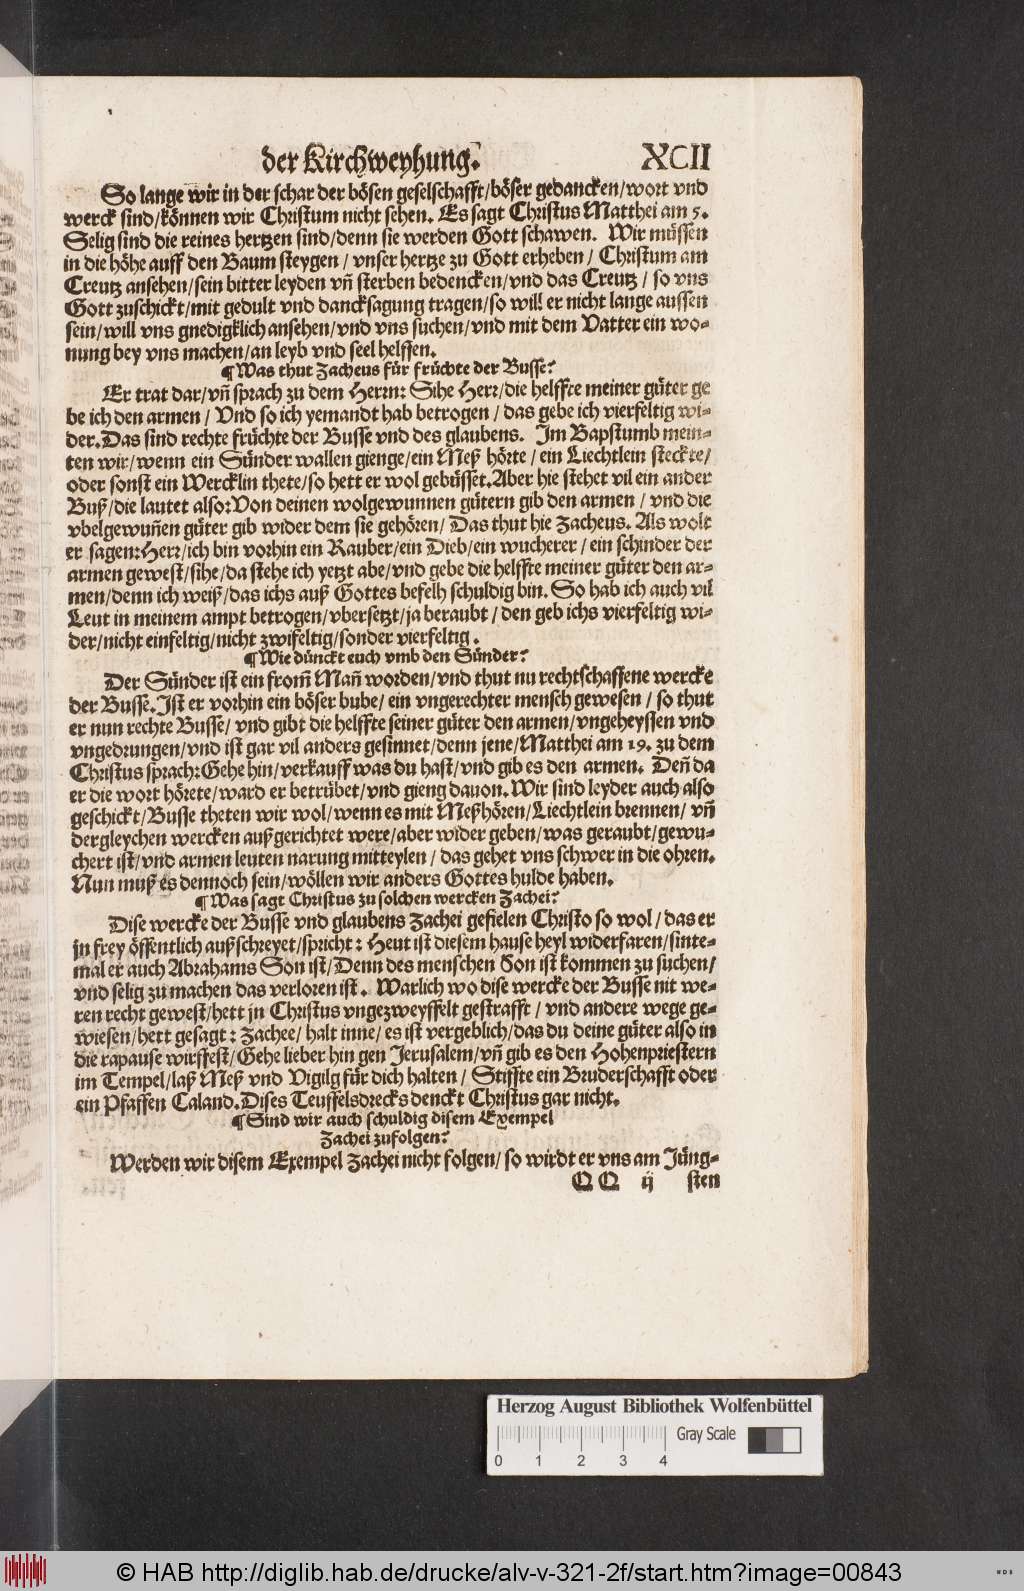 der Kirchweyhung. XCII
So lange wir in der schar der bösen geselschafft/böser gedancken/wort vnd
werck sind/können wir Christum nicht sehen. Es sagt Christus Matthei am 5.
Selig sind die reines hertzen sind/denn sie werden Gott schawen. Wir müssen
in die höhe auff den Baum steygen/ vnser hertze zu Gott erheben/ Christum am
Creutz ansehen/sein bitter leyden vñ sterben bedencken/vnd das Creutz/ so vns
Gott zuschickt/mit gedult vnd dancksagung tragen/so will er nicht lange aussen
sein/will vns gnedigklich ansehen/vnd vns suchen/vnd mit dem Vatter ein wo-
nung bey vns machen/an leyb vnd seel helffen.
¶ Was thut Zacheus für früchte der Busse?
Er trat dar/vñ sprach zu dem Herrn: Sihe Herr/die helffte meiner güter ge
be ich den armen/ Vnd so ich yemandt hab betrogen/ das gebe ich vierfeltig wi-
der. Das sind rechte früchte der Busse vnd des glaubens. Im Bapstumb mein-
ten wir/wenn ein Sünder wallen gienge/ein Meß hörte/ ein Liechtlein steckte/
oder sonst ein Wercklin thete/so hett er wol gebüsset. Aber hie stehet vil ein ander
Buß/die lautet also: Von deinen wolgewunnen gütern gib den armen/ vnd die
vbelgewuñen güter gib wider dem sie gehören/ Das thut hie Zacheus. Als wolt
er sagen: Herr/ich bin vorhin ein Rauber/ein Dieb/ein wucherer/ ein schinder der
armen gewest/sihe/da stehe ich yetzt abe/vnd gebe die helffte meiner güter den ar-
men/denn ich weiß/das ichs auß Gottes befelh schuldig bin. So hab ich auch vil
Leut in meinem ampt betrogen/vbersetzt/ja beraubt/ den geb ichs vierfeltig wi-
der/nicht einfeltig/nicht zwifeltig/sonder vierfeltig.
¶ Wie dünckt euch vmb den Sünder?
Der Sünder ist ein from̃ Mañ worden/vnd thut nu rechtschaffene wercke
der Busse. Ist er vorhin ein böser bube/ ein vngerechter mensch gewesen/ so thut
er nun rechte Busse/ vnd gibt die helffte seiner güter den armen/vngeheyssen vnd
vngedrungen/vnd ist gar vil anders gesinnet/denn jene/Matthei am 19. zu dem
Christus sprach: Gehe hin/verkauff was du hast/vnd gib es den armen. Deñ da
er die wort hörete/ward er betrübet/vnd gieng dauon. Wir sind leyder auch also
geschickt/Busse theten wir wol/wenn es mit Meßhören/Liechtlein brennen/ vñ
dergleychen wercken außgerichtet were/aber wider geben/was geraubt/gewu-
chert ist/vnd armen leuten narung mitteylen/ das gehet vns schwer in die ohren.
Nun muß es dennoch sein/wöllen wir anders Gottes hulde haben.
¶ Was sagt Christus zu solchen wercken Zachei?
Dise wercke der Busse vnd glaubens Zachei gefielen Christo so wol/ das er
jn frey öffentlich außschreyet/spricht: Heut ist diesem hause heyl widerfaren/sinte-
mal er auch Abrahams Son ist/Denn des menschen Son ist kommen zu suchen/
vnd selig zu machen das verloren ist. Warlich wo dise wercke der Busse nit we-
ren recht gewest/hett jn Christus vngezweyffelt gestrafft/ vnd andere wege ge-
wiesen/hett gesagt: Zachee/ halt inne/ es ist vergeblich/das du deine güter also in
die rapause wirffest/Gehe lieber hin gen Jerusalem/vñ gib es den Hohenpriestern
im Tempel/laß Meß vnd Vigilg für dich halten/ Stiffte ein Bruderschafft oder
ein Pfaffen Caland. Dises Teuffelsdrecks denckt Christus gar nicht.
¶ Sind wir auch schuldig disem Exempel
Zachei zufolgen?
Werden wir disem Exempel Zachei nicht folgen/ so wirdt er vns am Jüng-
QQ ij sten
Herzog August Bibliothek Wolfenbüttel
Gray Scale
0 1 2 3 4
© HAB http://diglib.hab.de/drucke/alv-v-321-2f/start.htm?image=00843